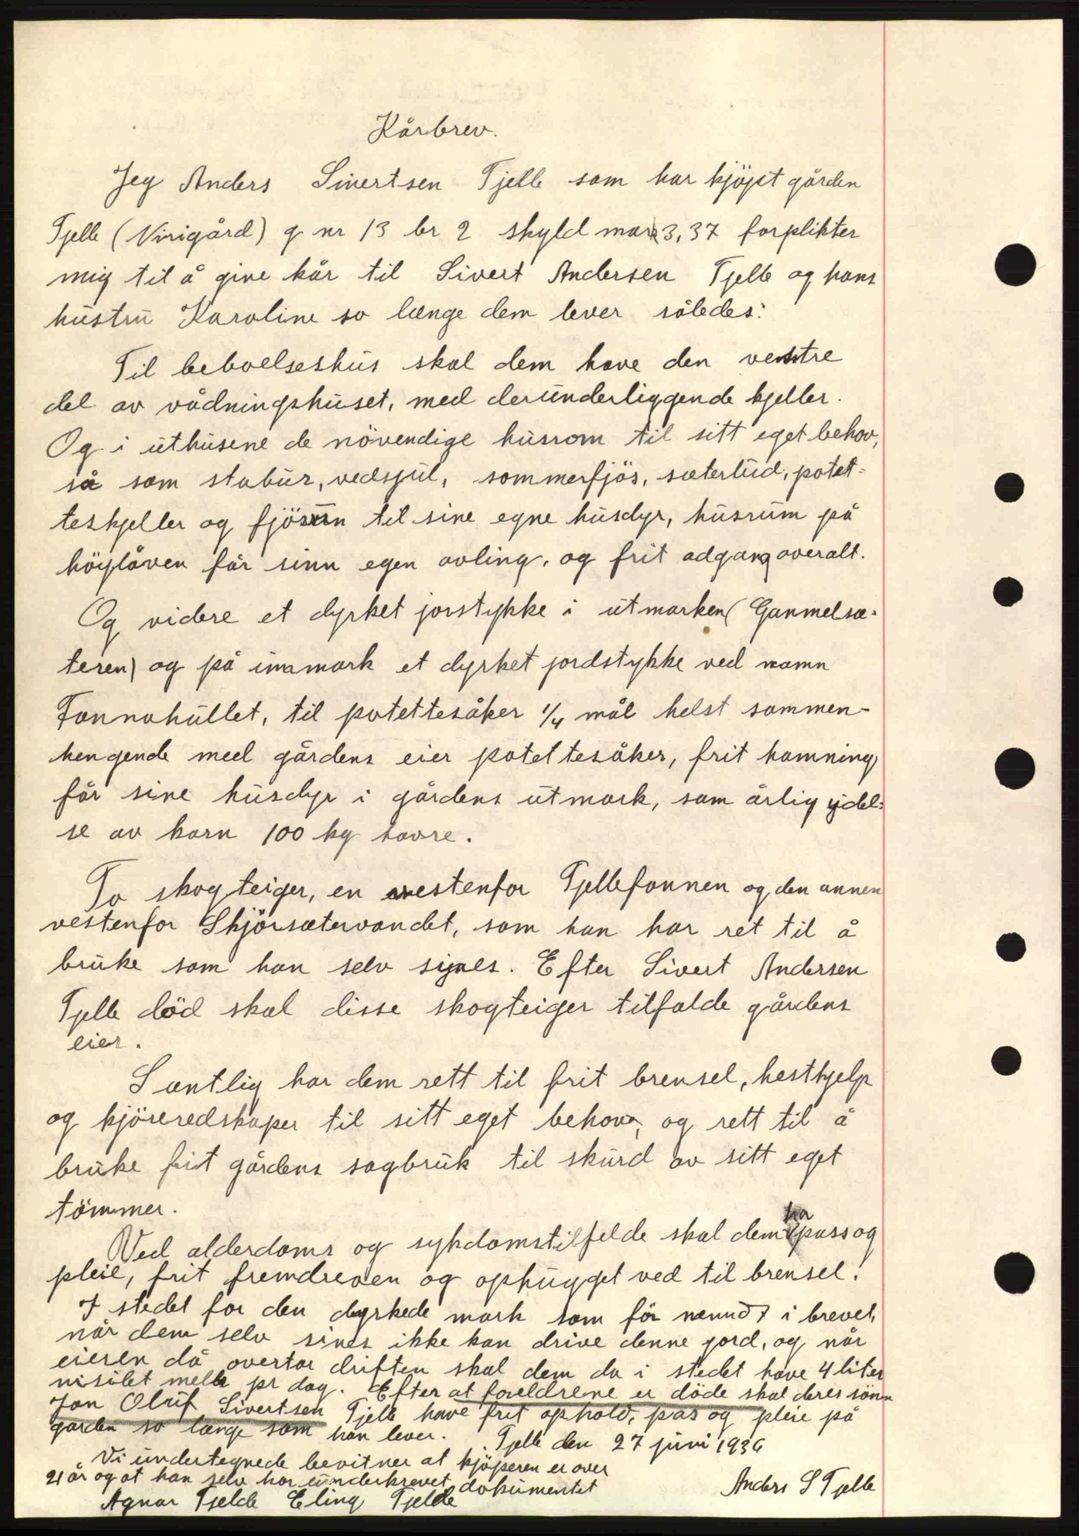 Kårbrev.
Jeg Anders Sivertsen Tjelle som har kjöpt gården
Tjelle (Nerigård) g nr 13 br 2 skyld mark 3,37 forplikter
mig til å give kår til Sivert Andersen Tjelle og hans
hustru Karoline so længe dem lever således:
Til beboelseshus skal dem have den venstre
del av vådningshuset, med derunderliggende kjeller.
Og i uthusene de növendige husrom til sitt eget behov,
så som stabur, vedsjul, sommerfjös, sæterbud, potet-
teskjeller og fjösrum til sine egne husdyr, husrum på
höylåven får sinn egen avling, og frit adgang overalt.
Og videre et dyrket jorstykke i utmarken (Gammelsæ-
teren) og på innmark et dyrket jordstykke ved namn
Fonnahullet, til potettesåker 1/4 mål helst sammen-
hengende med gårdens eier potettesåker, frit hamning
får sine husdyr i gårdens utmark, sam årlig ydel-
se av korn 100 kg havre.
To skogteiger, en vestenfor Tjellefonnen og den annen
vestenfor Skjörsætervandet, som han har ret til å
bruke som han selv synes. Efter Sivert Andersen
Tjelle död skal disse skogteiger tilfalde gårdens
eier.
Samtlig har dem rett til frit brensel, hesthjelp
og kjöreredskaper til sitt eget behov, og rett til å
bruke frit gårdens sagbruk til skurd av sitt eget
tömmer.
Ved alderdoms og sykdomstilfelde skal dem ha pass og
pleie, frit fremdreven og ophugget ved til brensel.
I stedet for den dyrkede mark som för nevnd i brevet,
når dem selv sines ikke kan drive denne jord, og når
eieren då overtar driften skal dem da i stedet have 4 liter
nisilet melk pr dag. Efter at foreldrene er döde skal deres sönn
Jon Oluf Sivertsen Tjelle have frit ophold, pas og pleie på
gården so længe som han lever. Tjelle den 27 juni 1936
Vi undertegnede bevitner at kjöperen er over
21 år og at han selv har underkrevet dokumentet
Anders S Tjelle
Agnar Tjelde Eling Tjelde